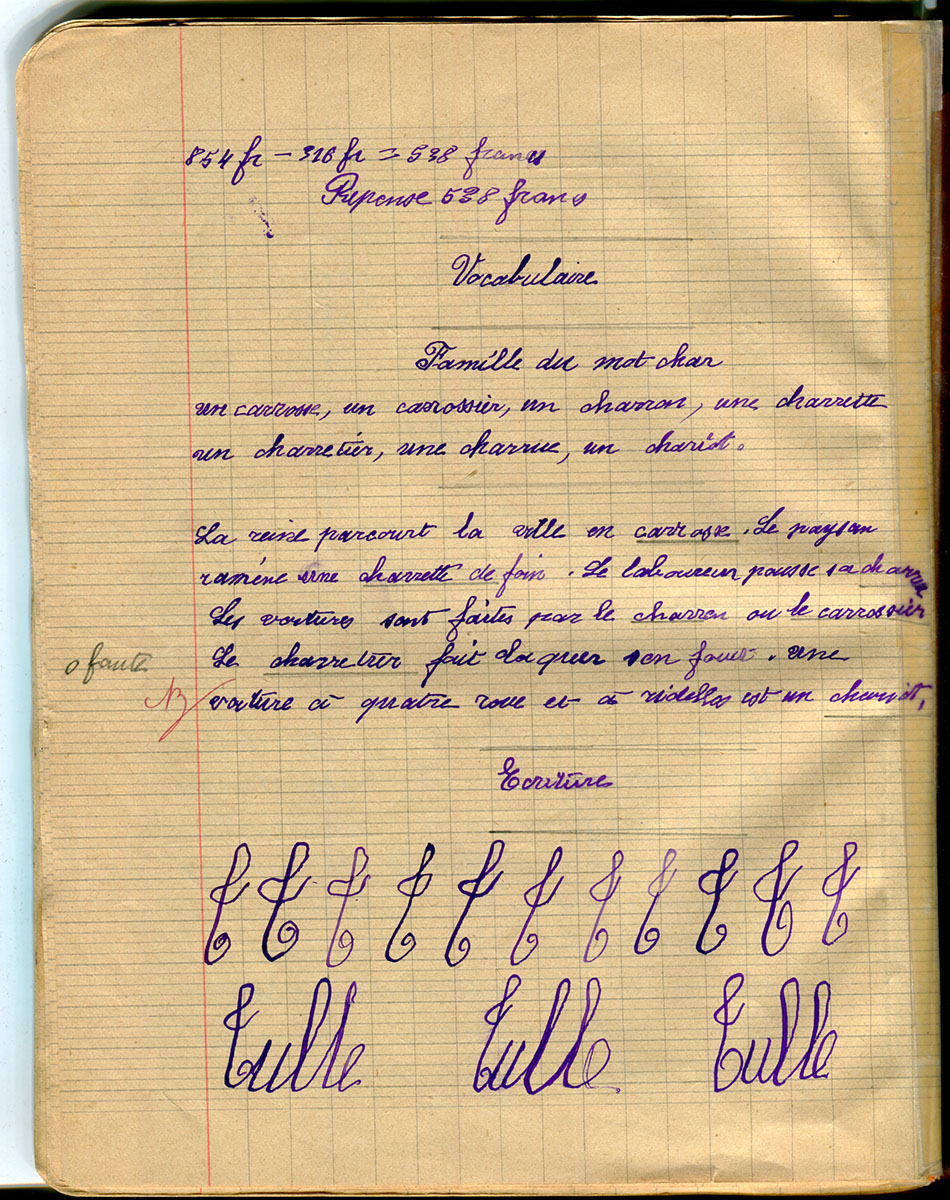 854 fr - 316 fr = 538 francs
Reponse 538 francs
Vocabulaire
Famille du mot char
un carrosse, un carrossier, un charron, une charrette
un charretier, une charrue, un chariot.
La reine parcourt la ville en carrosse. Le paysan
ramène une charrette de foin. Le laboureur pousse sa charrue
Les voitures sont faites par le charron ou le carrossier
0 faute
Le charretier fait claquer son fouet. une
voiture à quatre roue et à ridelles est un chariot,
Ecriture
T T T T T T T T T T T
Tulle Tulle Tulle